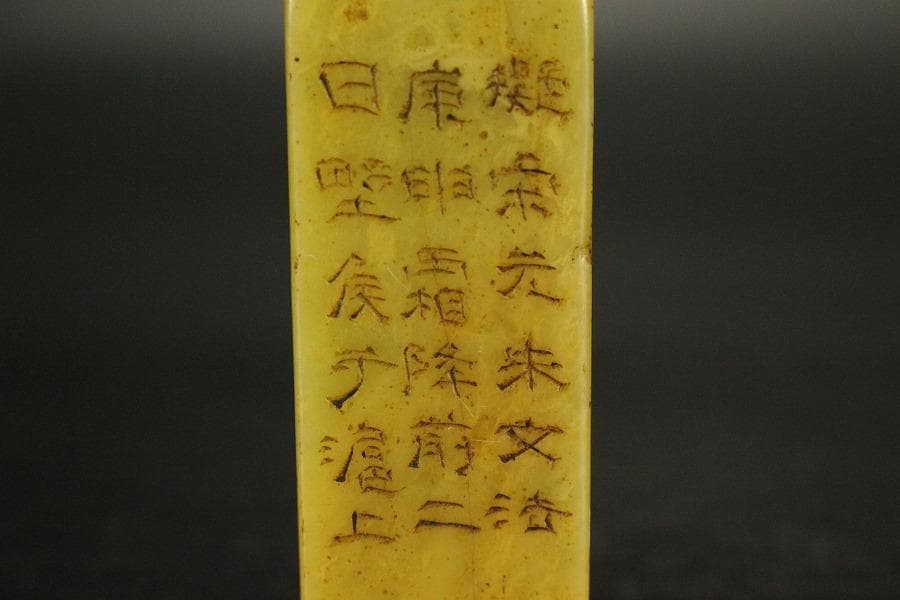 擬宋元朱文法
庚申霜降前二
日堅侯于滬上